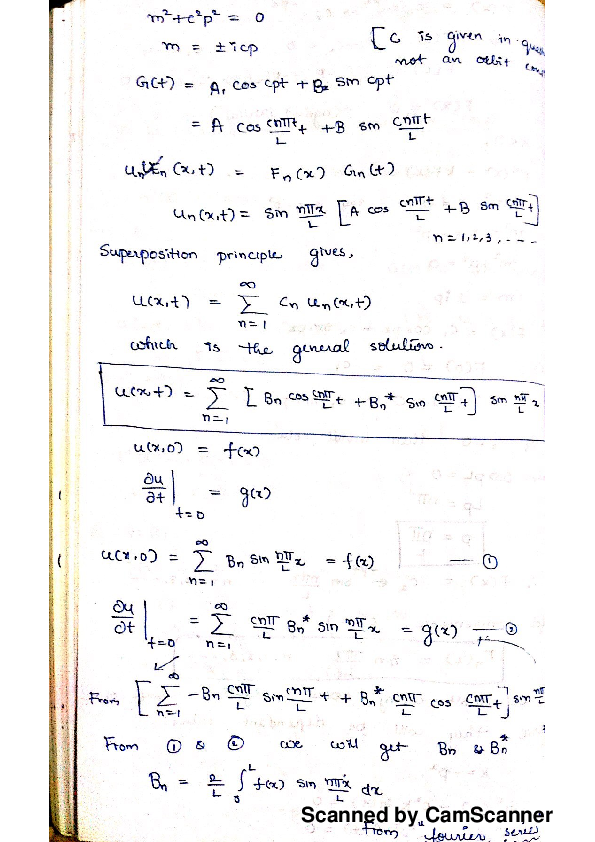 m² + c²p² = 0
m = ± icp [C is given in
not an
G(t) = A₁ cos cpt + B₂ sin cpt
= A cos cnπt/L + B sin cnπt/L
uₙ(x,t) = Fₙ(x) Gₙ(t)
uₙ(x,t) = sin nπx/L [A cos cnπt/L + B sin cnπ/L t]
n = 1,2,3, ----
Superposition principle gives,
u(x,t) = ∑ₙ₌₁^∞ Cₙ uₙ(x,t)
which is the general solution.
u(x,t) = ∑ₙ₌₁^∞ [Bₙ cos cnπ/L t + Bₙ* sin cnπ/L t] sin nπ/L x
u(x,0) = f(x)
∂u/∂t |ₜ₌₀ = g(x)
u(x,0) = ∑ₙ₌₁^∞ Bₙ sin nπ/L x = f(x) — ①
∂u/∂t |ₜ₌₀ = ∑ₙ₌₁^∞ cnπ/L Bₙ* sin nπ/L x = g(x) — ②
From [∑ₙ₌₁^∞ -Bₙ cnπ/L sin cnπ/L t + Bₙ* cnπ/L cos cnπ/L t] sin nπ
From ① & ② we will get Bₙ & Bₙ*
Bₙ = 2/L ∫₀^L f(x) sin nπx/L dx
Scanned by CamScanner
from fourier